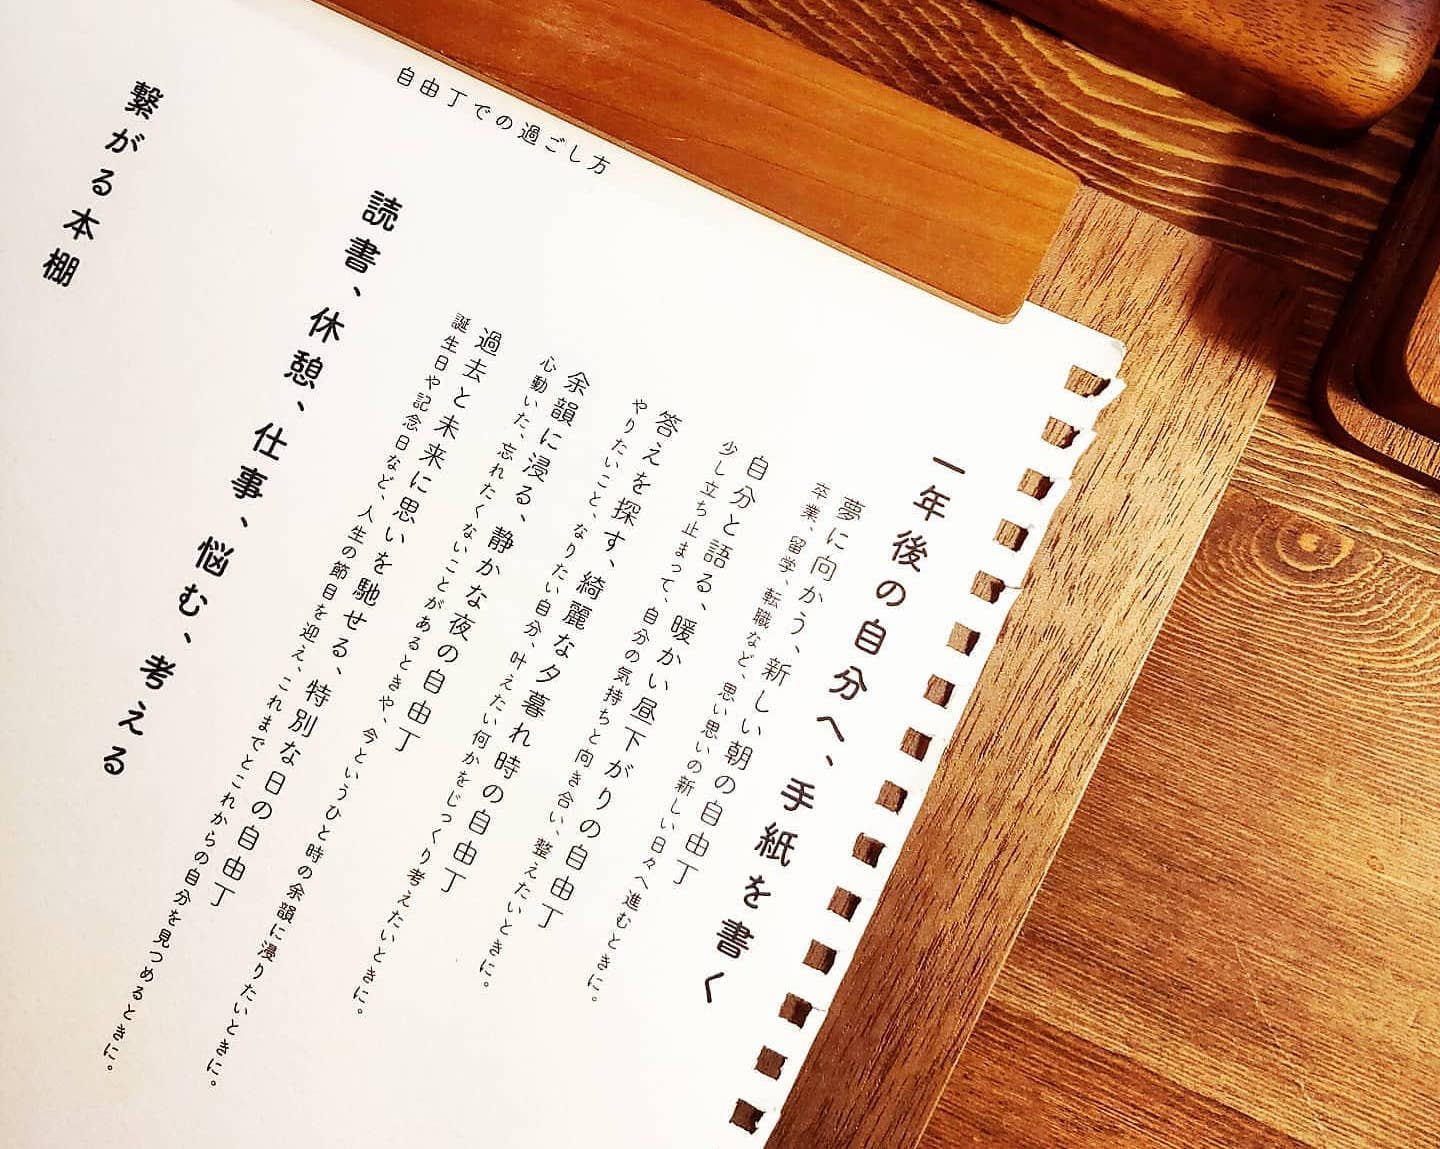 自由丁での過ごし方
一年後の自分へ、手紙を書く
夢に向かう、新しい朝の自由丁
卒業、留学、転職など、思い思いの新しい日々へ進むときに。
自分と語る、暖かい昼下がりの自由丁
少し立ち止まって、自分の気持ちと向き合い、整えたいときに。
答えを探す、綺麗な夕暮れ時の自由丁
やりたいこと、なりたい自分、叶えたい何かをじっくり考えたいときに。
余韻に浸る、静かな夜の自由丁
心動いた、忘れたくないことがあるときや、今というひと時の余韻に浸りたいときに。
過去と未来に思いを馳せる、特別な日の自由丁
誕生日や記念日など、人生の節目を迎え、これまでとこれからの自分を見つめるときに。
読書、休憩、仕事、悩む、考える
繋がる本棚